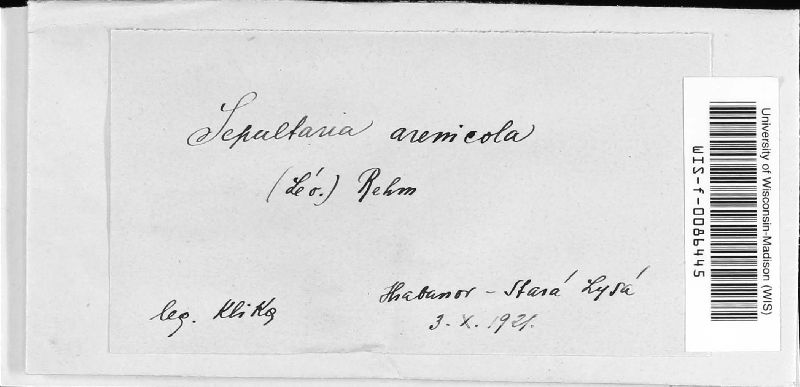 Sepultaria arenicola
(Lév.) Rehm
leg. Klika
Hrabanov - Stará Lysá
3. X. 1921.
University of Wisconsin-Madison (WIS)
WIS-f-0086445